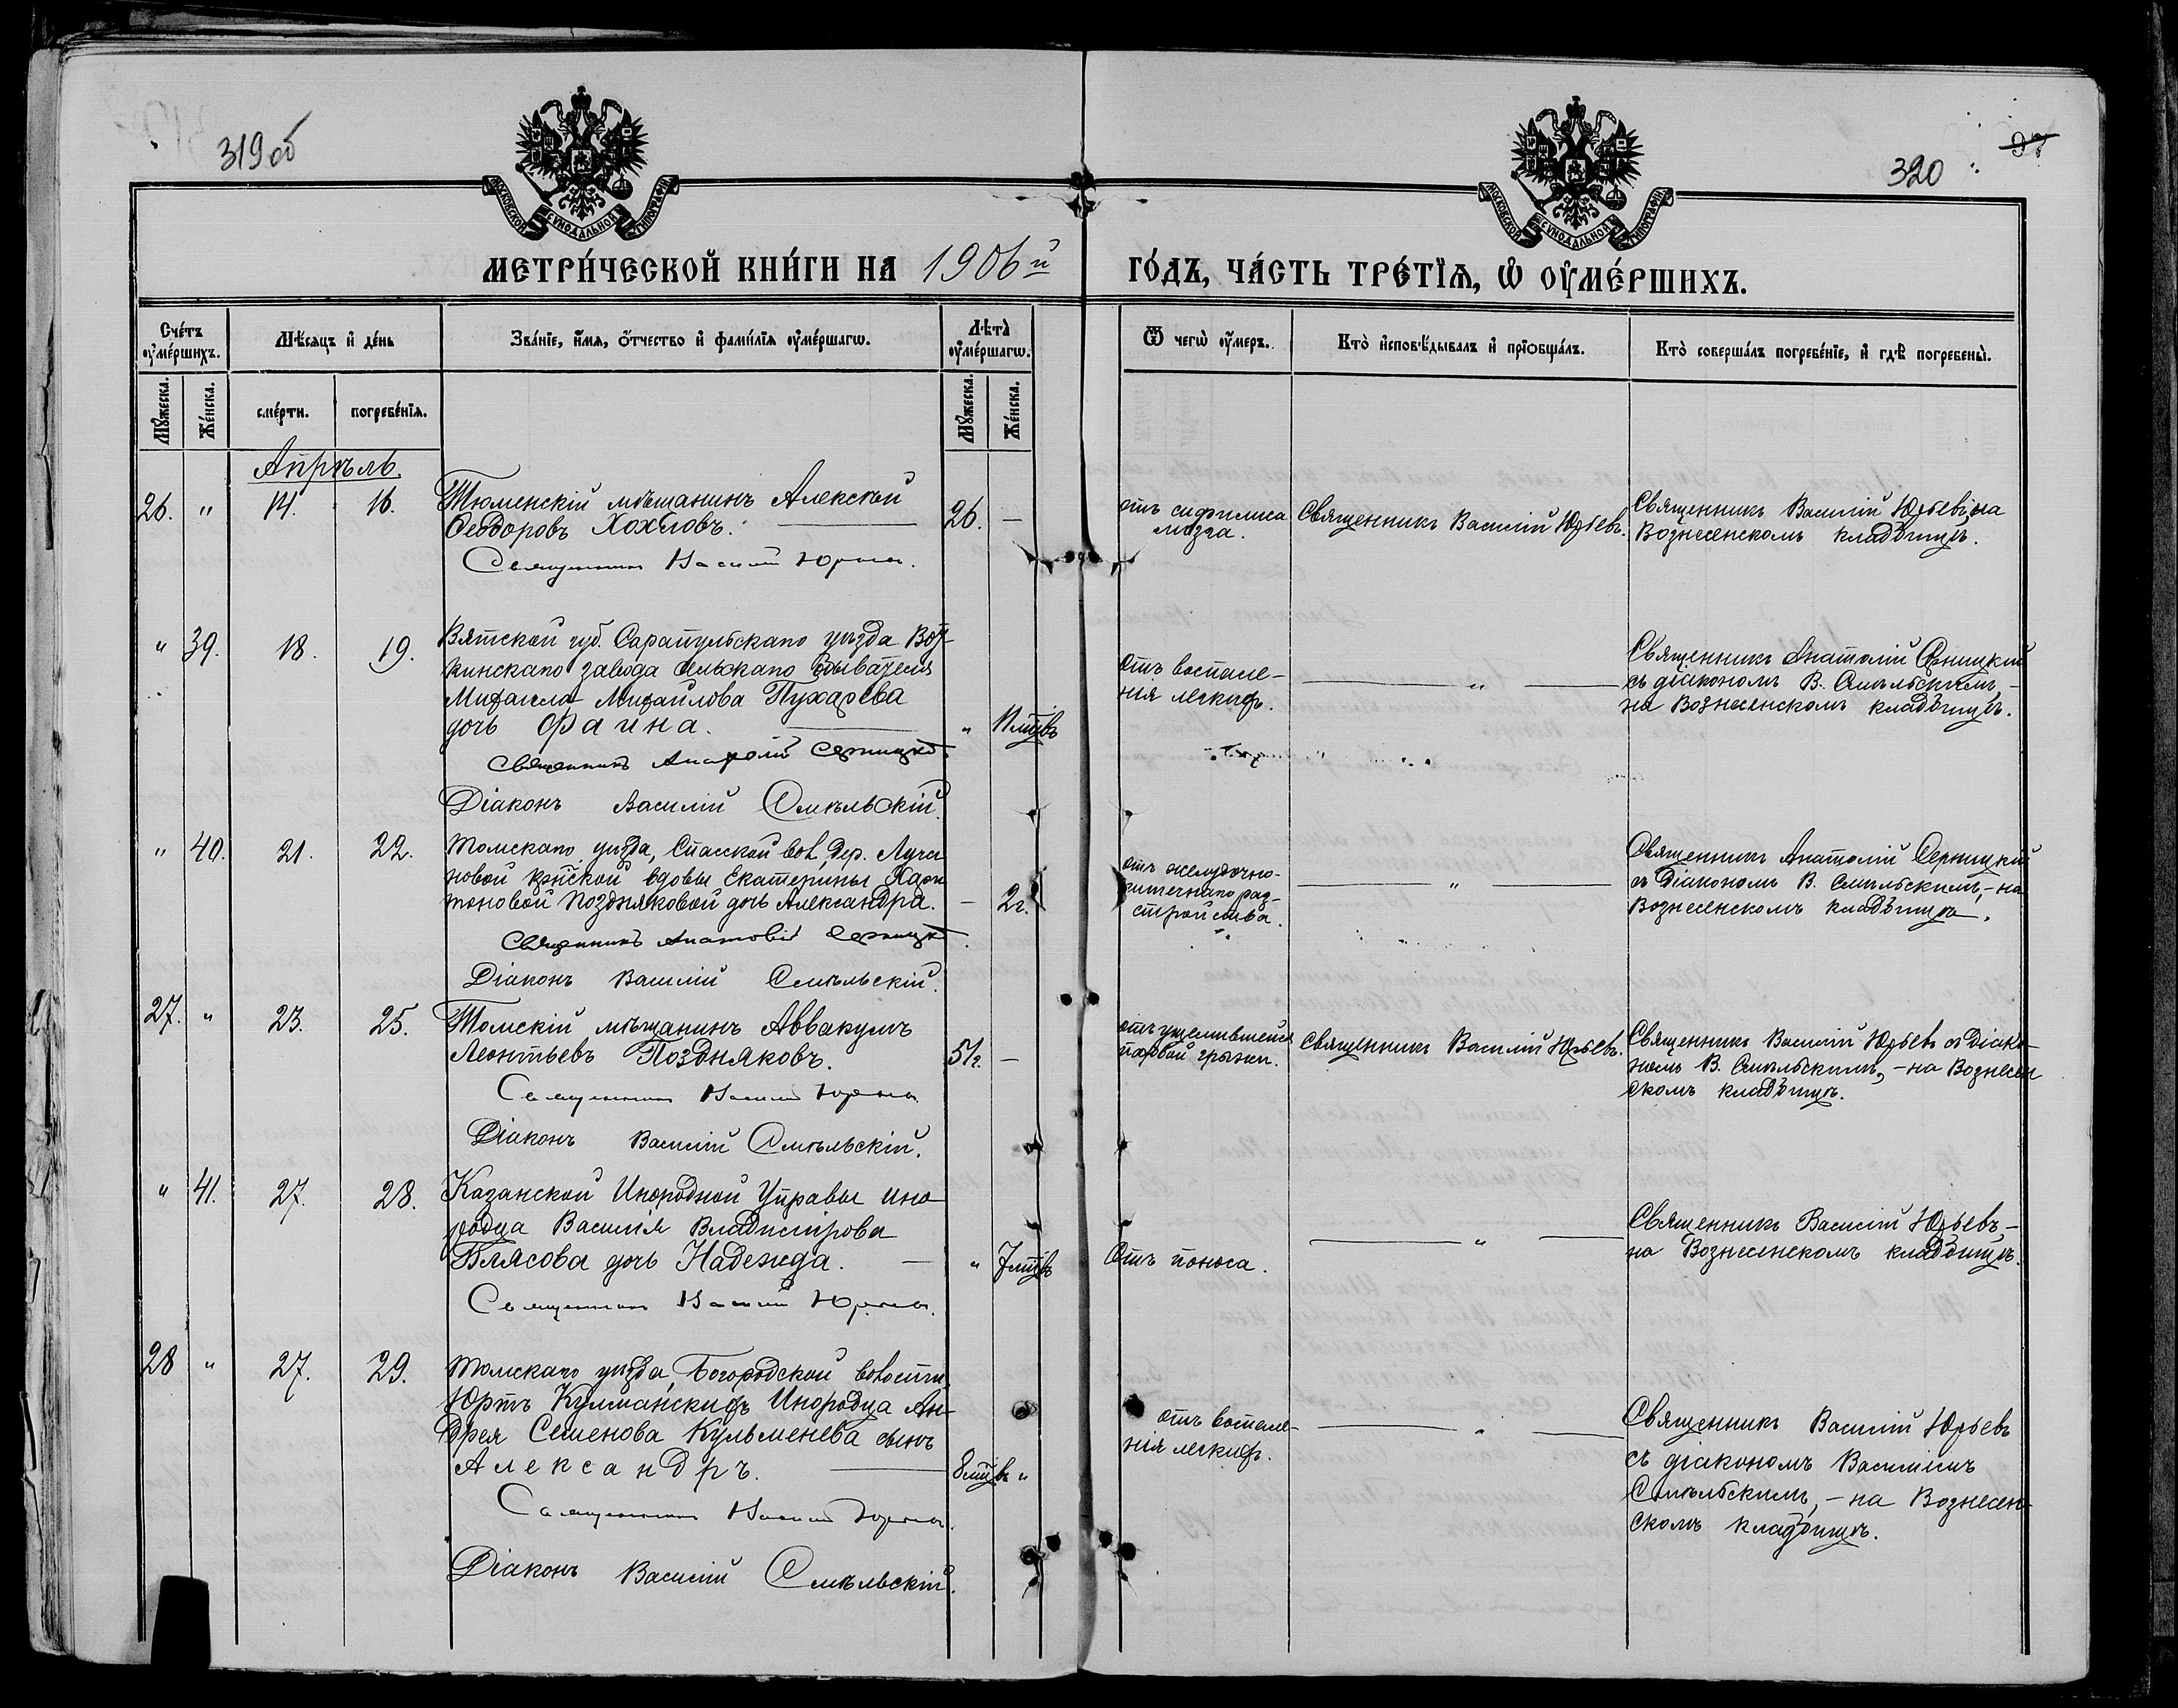 319 об
320
97
МОСКОВСКОЙ СѴНОДАЛЬНОЙ ТИПОГРАФІИ
МОСКОВСКОЙ СѴНОДАЛЬНОЙ ТИПОГРАФІИ
МЕТРИ́ЧЕСКОЙ КНИ́ГИ НА 1906й ГО́ДЪ, ЧА́СТЬ ТРЕ́ТЇѦ, Ѡ ОУ҆МЕ́РШИХЪ.
Сче́тъ оу҆ме́ршихъ.
Мѣ́сѧцъ и҆ де́нь
Зва́нїе, и҆́мѧ, ѻ҆́тчество и҆ фамѝлїѧ оу҆ме́ршагѡ.
Лѣта̀ оу҆ме́ршагѡ.
Ѿ чегѡ̀ оу҆́меръ.
Кто̀ и҆сповѣ́дывалъ и҆ прїѡбща́лъ.
Кто̀ соверша́лъ погребе́нїе, и҆ гдѣ̀ погребены̀.
Мꙋ́жеска. Же́нска. сме́рти. погребе́нїѧ. Мꙋ́жеска. Же́нска.
Апрѣль.
26. " 14. 16. Тюменскій мѣщанинъ Алексѣй
Ѳеодоровъ Хохловъ. 26. —
Священникъ Василій Юрьевъ.
отъ сифилиса
мозга.
Священникъ Василій Юрьевъ.
Священникъ Василій Юрьевъ, на
Вознесенскомъ кладбищѣ.
" 39. 18. 19. Вятской губ. Сарапульскаго уѣзда Вот-
кинскаго завода сельскаго обывателя
Михаила Михайлова Пухарева
дочь Фаина. " 11 мцвъ
Священникъ Анатолій Серницкій
Діаконъ Василій Смѣльскій.
Отъ воспале-
нія легкихъ.
"
Священникъ Анатолій Серницкій
съ діакономъ В. Смѣльскимъ, —
на Вознесенскомъ кладбищѣ.
" 40. 21. 22. Томскаго уѣзда, Спасской вол, дер. Лучи
новой крест̃ской вдовы Екатерины Хари
тоновой Поздняковой дочь Александра. — 2 г.
Священникъ Анатолій Серницкій.
Діаконъ Василій Смѣльскій.
отъ желудочно-
кишечнаго раз-
стройства.
"
Священникъ Анатолій Серницкій
съ Діакономъ В. Смѣльскимъ, — на
Вознесенскомъ кладбищѣ.
27. " 23. 25. Томскій мѣщанинъ Аввакумъ
Леонтьевъ Поздняковъ. 51 г. —
Священникъ Василій Юрьевъ
Діаконъ Василій Смѣльскій.
отъ ущемившейся
паховой грыжи.
Священникъ Василій Юрьевъ.
Священникъ Василій Юрьевъ съ Діако-
номъ В. Смѣльскимъ, — на Вознесен
скомъ кладбищѣ.
" 41. 27. 28. Казанской Инородной Управы ино
родца Василія Владимірова
Блясова дочь Надежда. — " 7 мцвъ
Священникъ Василій Юрьевъ.
Отъ поноса.
"
Священникъ Василій Юрьевъ, —
на Вознесенскомъ кладбищѣ.
28 " 27. 29. Томскаго уѣзда, Богородской волости
Юртъ Кулманскихъ Инородца Ан-
дрея Семенова Кульменева сынъ
Александръ. — 8 мцвъ "
Священникъ Василій Юрьевъ.
Діаконъ Василій Смѣльскій.
отъ воспале-
нія легкихъ.
"
Священникъ Василій Юрьевъ
съ діакономъ Василіемъ
Смѣльскимъ, — на Вознесен-
скомъ кладбищѣ.